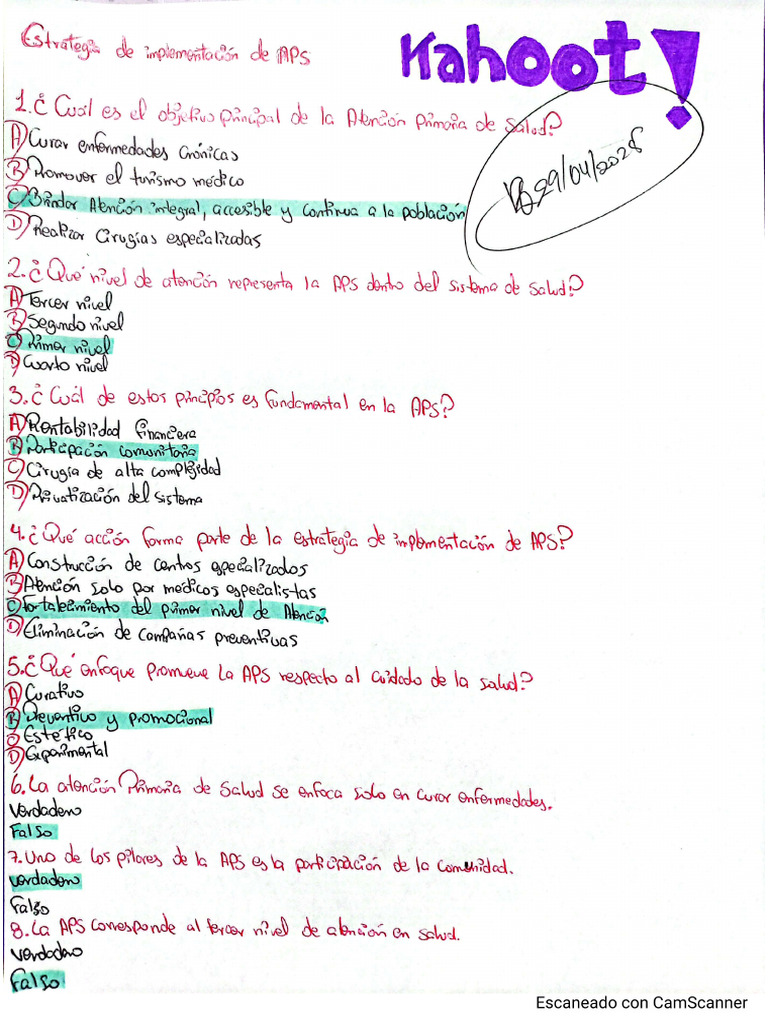 Estrategia de implementación de APS
Kahoot!
29/04/2025
1. ¿Cuál es el objetivo principal de la Atención Primaria de Salud?
A) Curar enfermedades Crónicas
B) Promover el turismo médico
C) Brindar Atención integral, accesible y continua a la población
D) Realizar Cirugías especializadas
2. ¿Qué nivel de atención representa la APS dentro del sistema de salud?
A) Tercer nivel
B) Segundo nivel
C) Primer nivel
D) Cuarto nivel
3. ¿Cuál de estos principios es fundamental en la APS?
A) Rentabilidad financiera
B) Participación comunitaria
C) Cirugía de alta complejidad
D) Privatización del sistema
4. ¿Qué acción forma parte de la estrategia de implementación de APS?
A) Construcción de centros especializados
B) Atención solo por médicos especialistas
C) Fortalecimiento del primer nivel de Atención
D) Eliminación de campañas preventivas
5. ¿Qué enfoque promueve la APS respecto al cuidado de la salud?
A) Curativo
B) Preventivo y promocional
C) Estético
D) Experimental
6. La atención Primaria de Salud se enfoca solo en curar enfermedades.
Verdadero
Falso
7. Uno de los pilares de la APS es la participación de la comunidad.
Verdadero
Falso
8. La APS corresponde al tercer nivel de atención en salud.
Verdadero
Falso
Escaneado con CamScanner